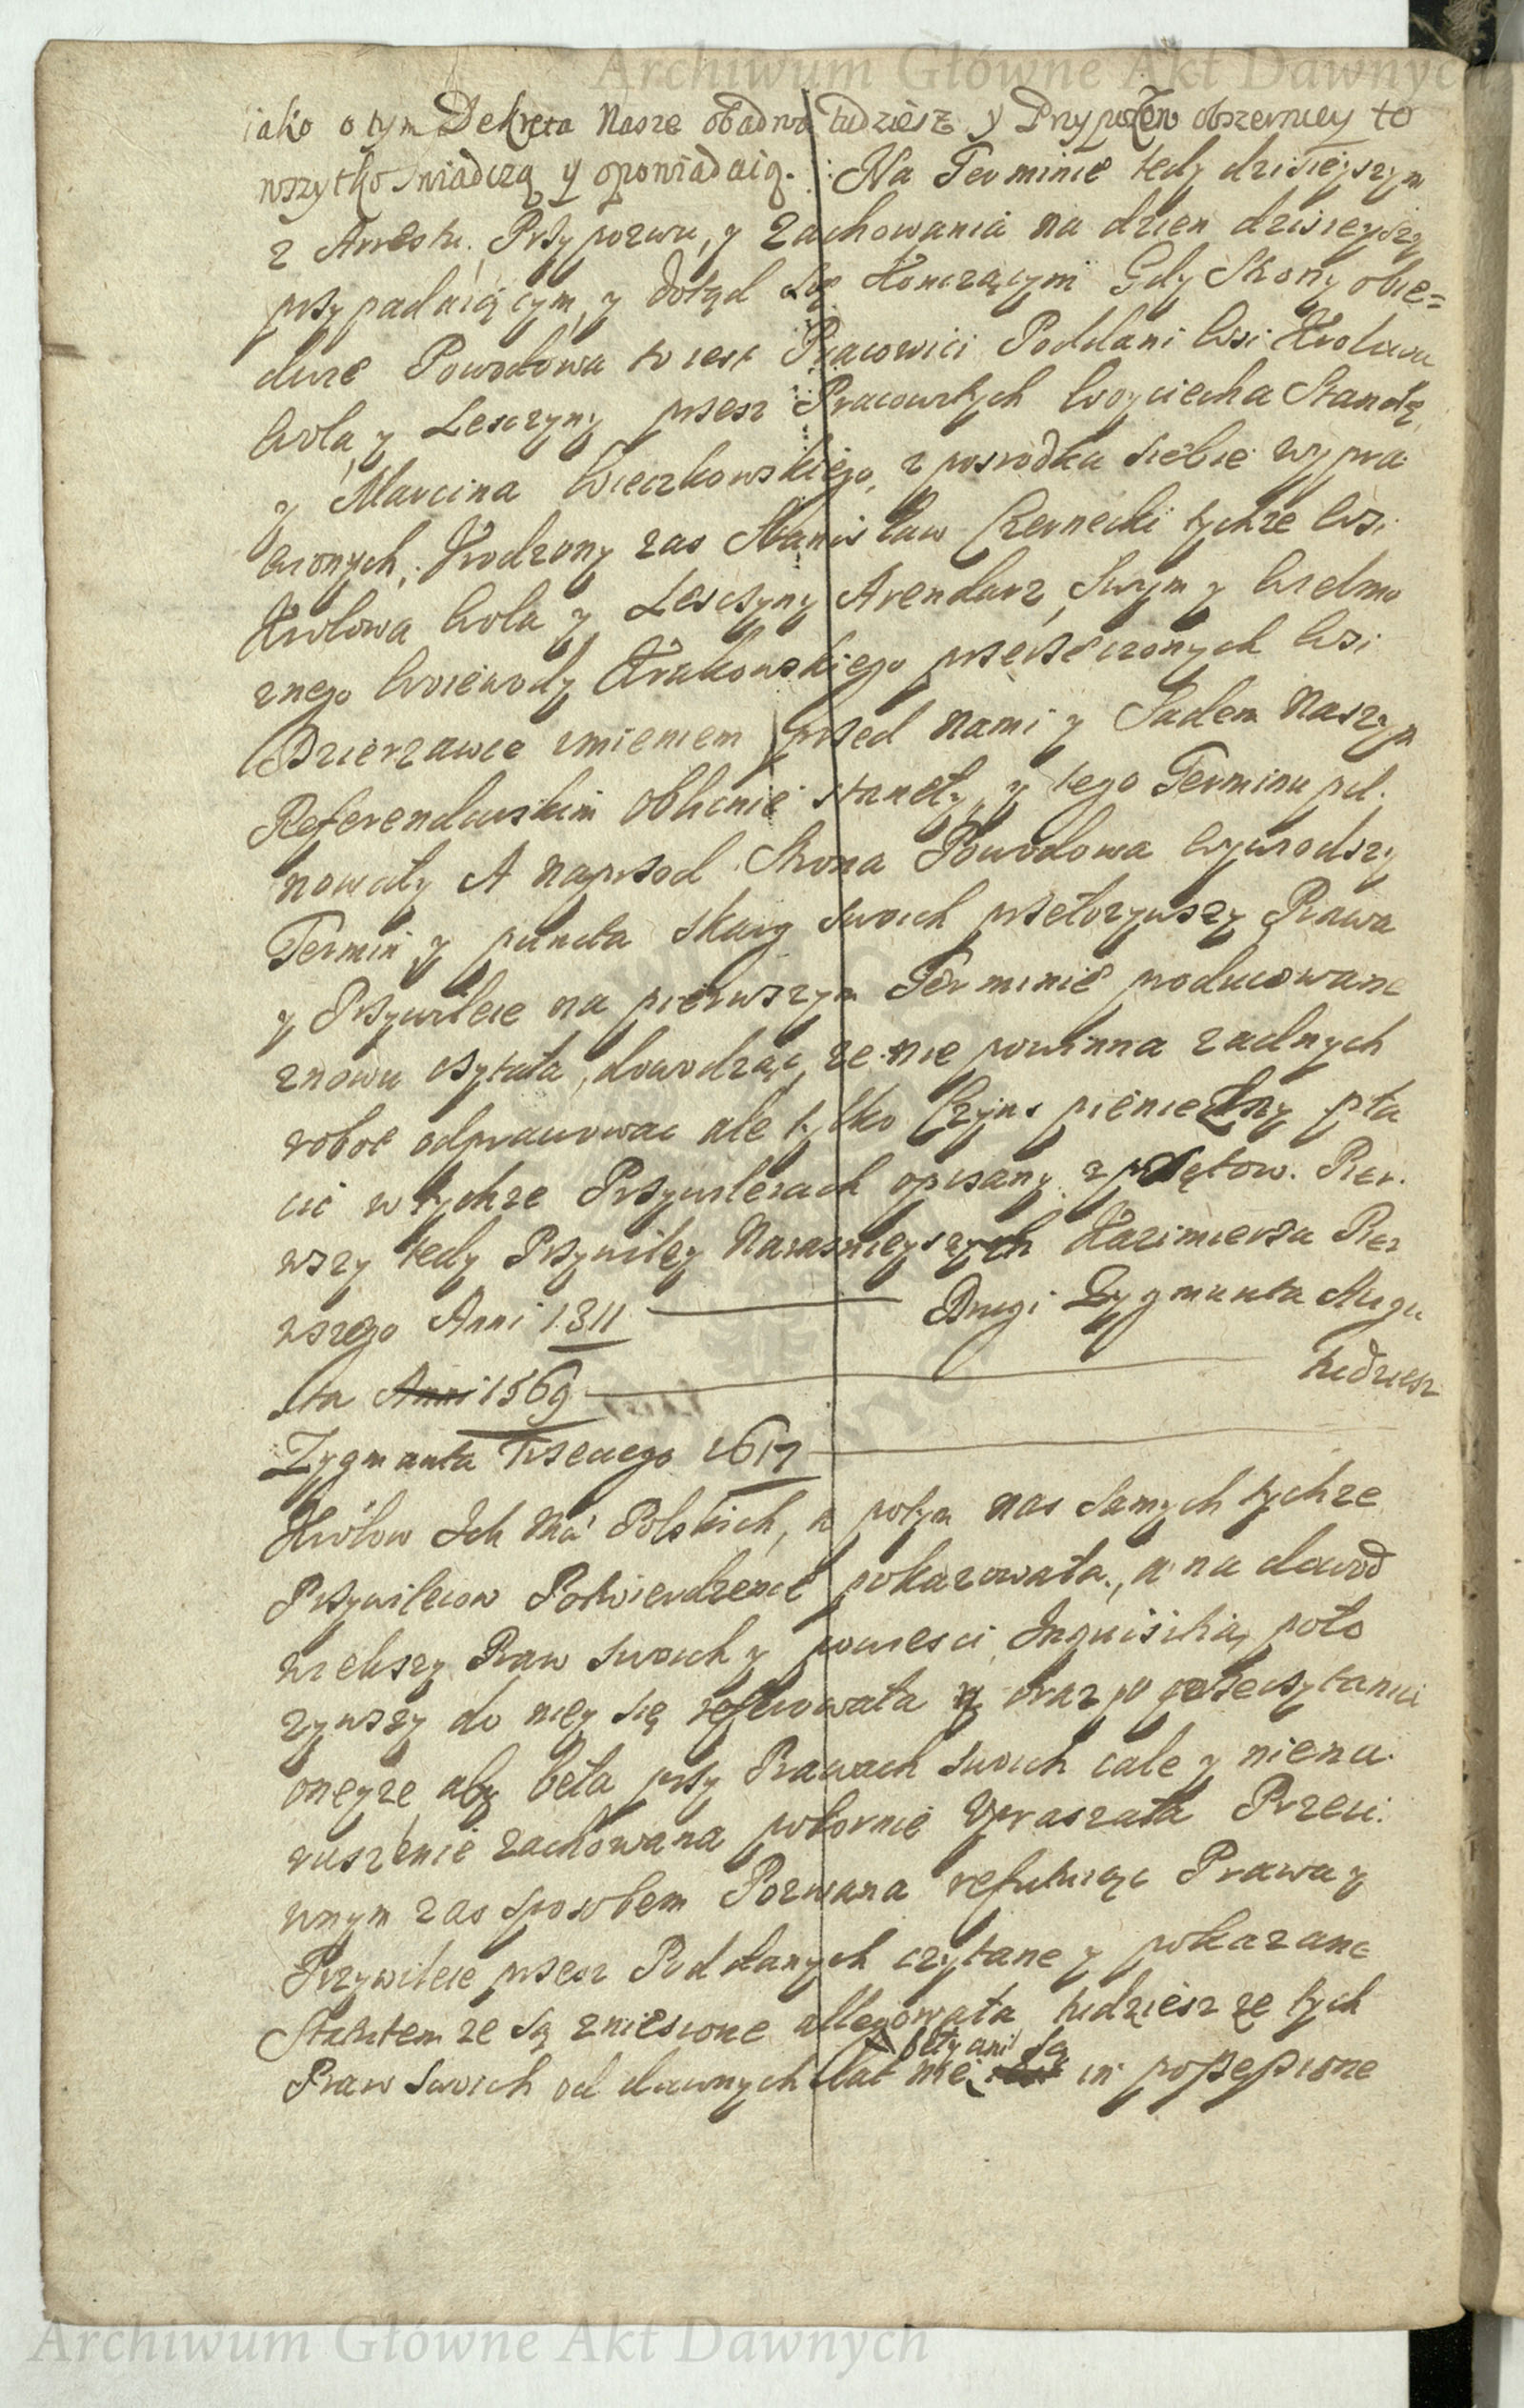 Archiwum Główne Akt Dawnych
iako o tym Dekreta Nasze obadwa tudziesz y Przypozew obszerniey to
wszytko swiadczą y opowiadaią. Na Terminie tedy dzisieyszym
z Arrestu, Przypozwu, y Zachowania na dzien dzisieyszy
przypadaiącym, y dotąd się konczącym Gdy Strony obie=
dwie Powodowa to iest Pracowici Poddani Wsi Krolowa
Wola, y Lesczyny przesz Pracowitych Woyciecha Stanetę,
y Marcina Wieczkowskiego, z posrodka siebie wypra
wionych, Urodzony zas Stanisław Czernecki tychze Wsi
Krolowa Wola y Lesczyny Arendarz, swym y Wielmo
znego Woiewody Krakowskiego przerzeczonych Wsi
Dzierzawce imieniem przed Nami y Sądem Naszym
Referendarskim oblicnie stanęły, y tego Terminu pil.
nowały A naprzod Strona Powodowa wywodszy
Termin y puncta skarg swoich przełozywszy Prawa
y Przywileie na pierwszym Terminie producowane
znowu czytała, dowodząc, ze nie powinna zadnych
robot odprawowac ale tylko Czyns pieniezny pła
cic w tychze Przywileiach opisany z prętow. Pier.
wszy tedy Przywiley Naiasnieyszych Kazimierza Pier
wszego Anni 1311 Drugi Zygmunta Augu
sta Anni 1569 tudziesz
Zygmunta Trzeciego 1617
Krolow Ich Mci Polskich, a potym nas samych tychze
Przywileiow Potwierdzenie pokazowała, a na dowod
wiekszy Praw swoich y powiesci Inquisitią poło
zywszy do niey się referowała y oraz po przeczytaniu
oneyze aby beła przy Prawach swoich cale y niena.
ruszenie zachowana pokornie Upraszała Przeci.
wnym zas sposobem Pozwana refutuiąc Prawa y
Przywileie przesz Poddanych czytane y pokazane
Statutem ze są zniesione allegowała tudziesz ze tych
beły ani są
Praw swoich od dawnych lat nie in possessione
Archiwum Główne Akt Dawnych